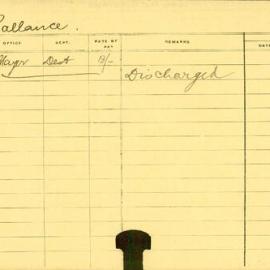 Gallance.
OFFICE DEPT. RATE OF PAY REMARKS DATE
Mayor Dest 13/- Discharged